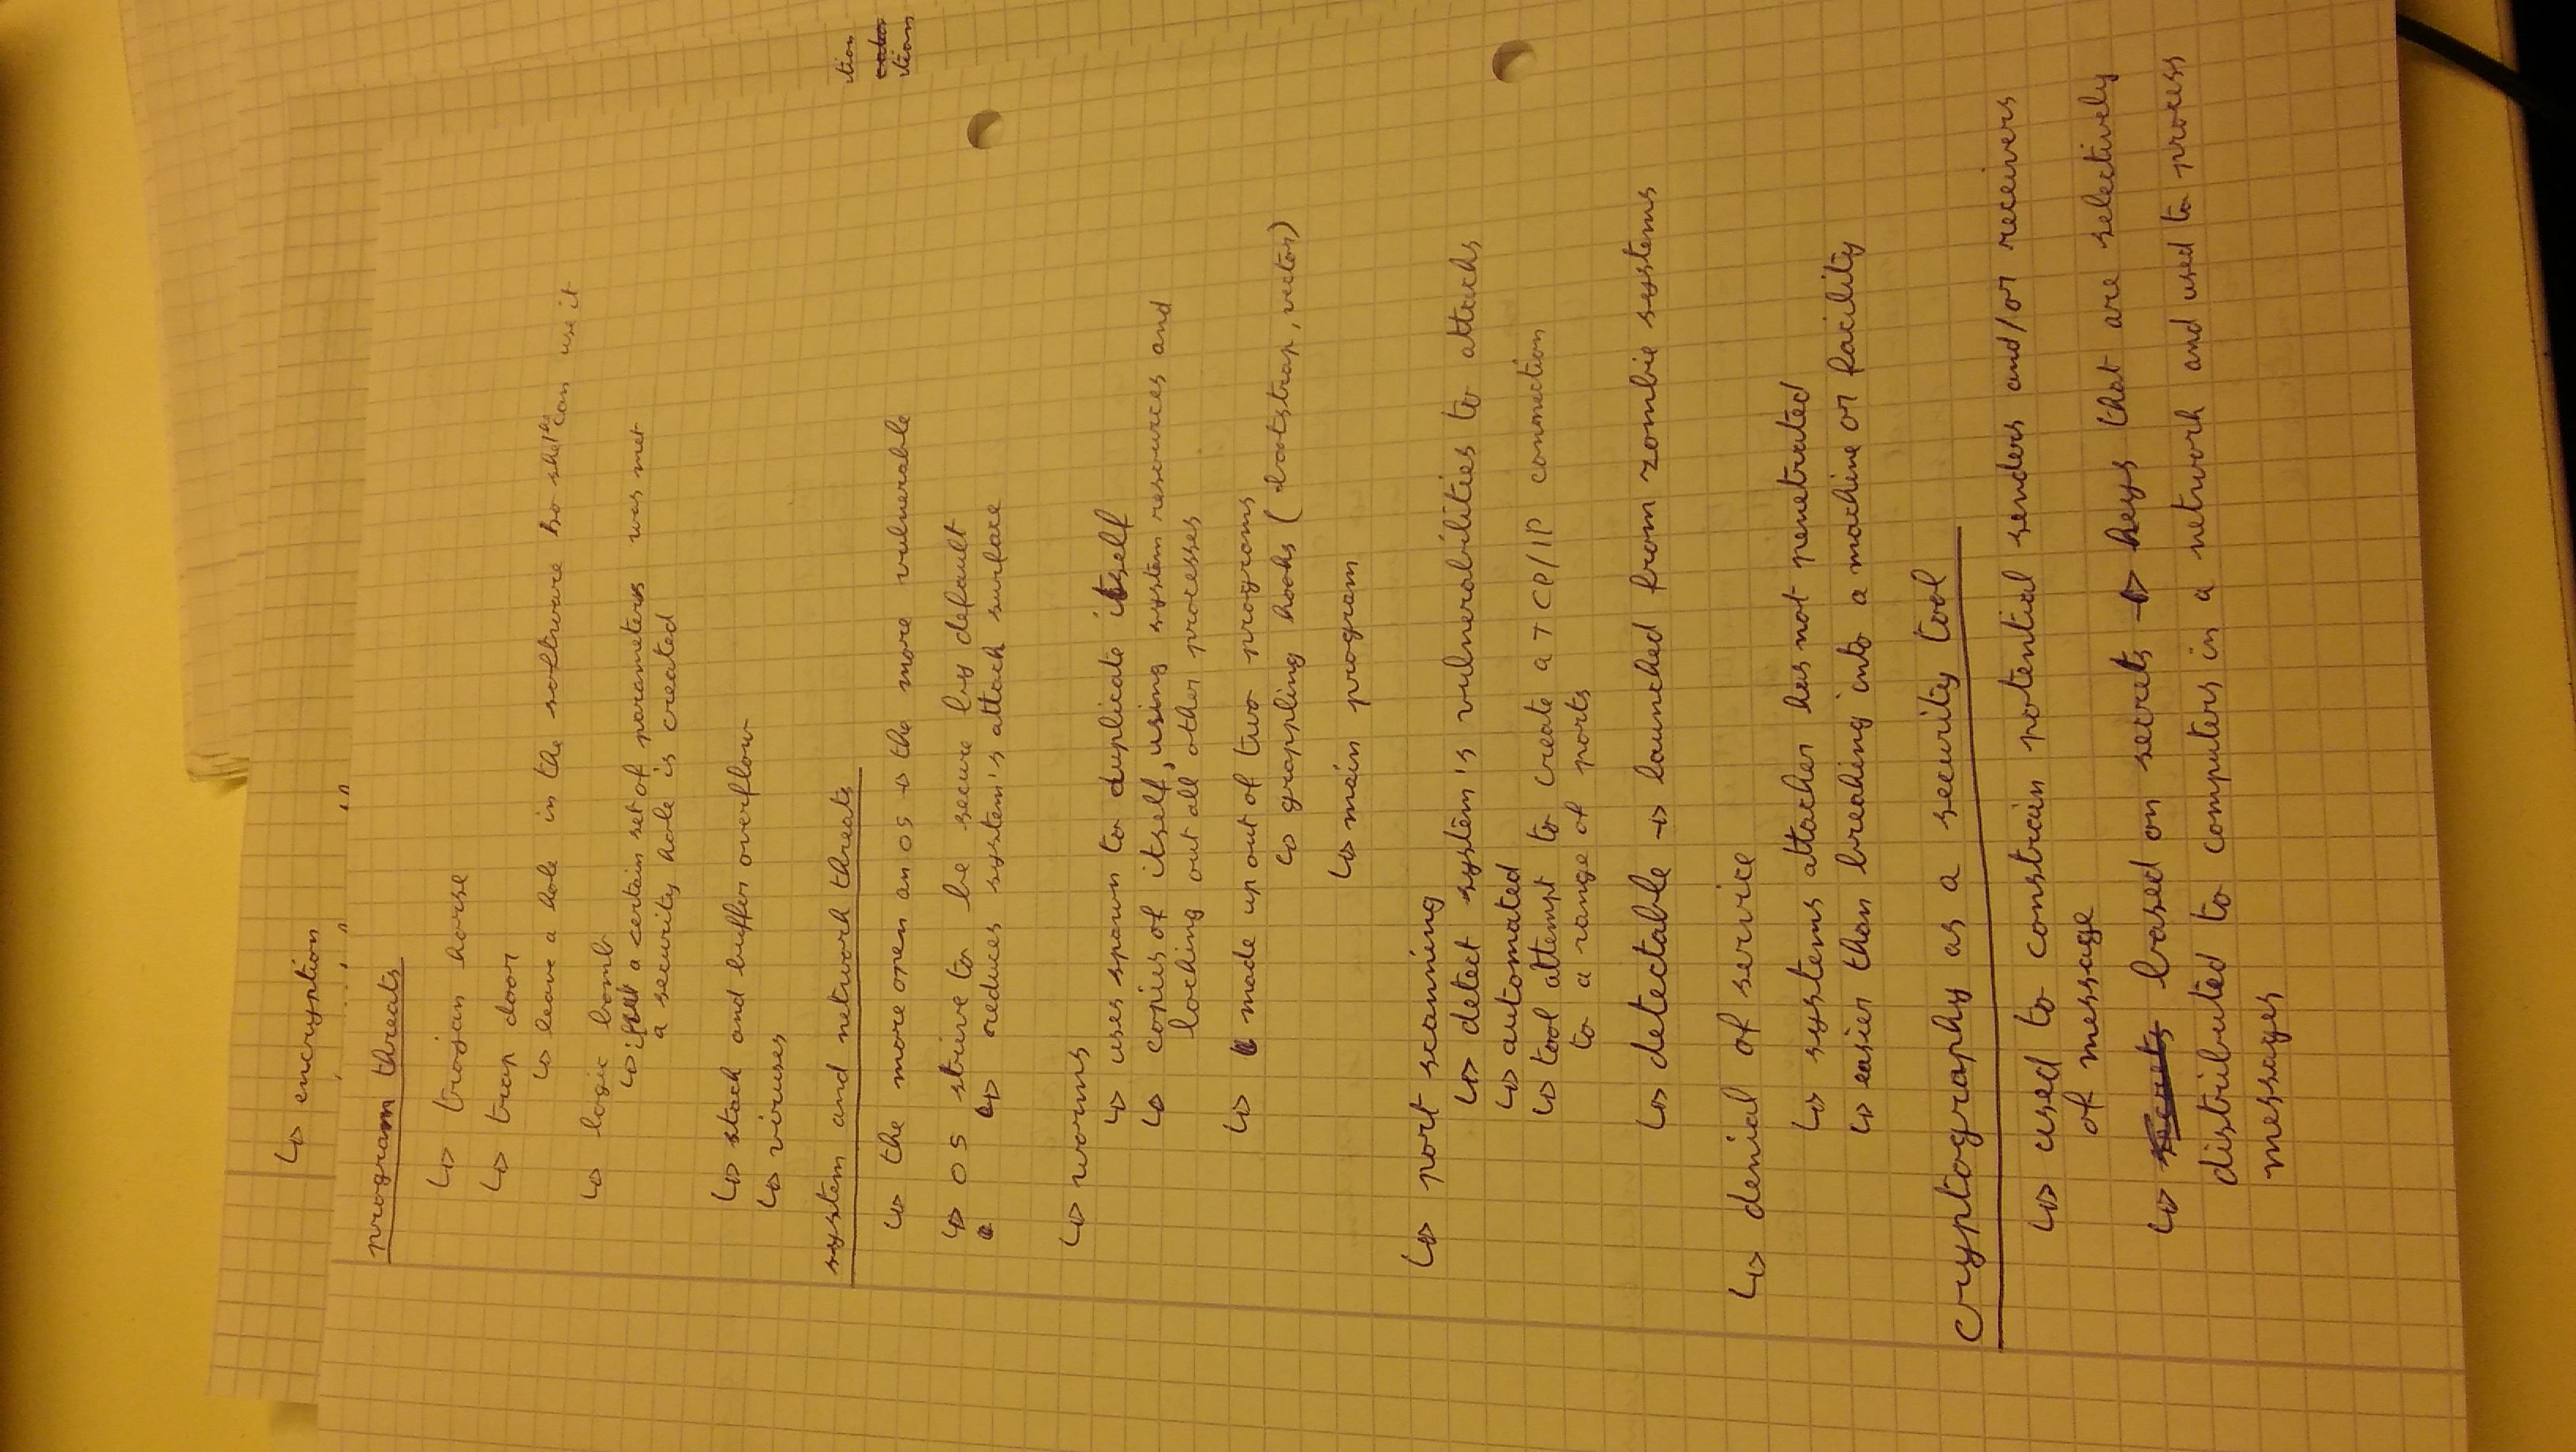 ↳ encryption
program threats
↳ trojan horse
↳ trap door
↳ leave a hole in the software so she/he can use it
↳ logic bomb
↳ if a certain set of parameters was met
a security hole is created
↳ stack and buffer overflow
↳ viruses
system and network threats
↳ the more open an OS → the more vulnerable
↳ OS strive to be secure by default
↳ reduces system's attack surface
↳ worms
↳ uses spawn to duplicate itself
↳ copies of itself, using system resources and
locking out all other processes
↳ made up out of two programs
↳ grappling hooks (bootstrap, vector)
↳ main program
↳ port scanning
↳ detect system's vulnerabilities to attacks
↳ automated
↳ tool attempt to create a TCP/IP connection
to a range of ports
↳ detectable → launched from zombie systems
↳ denial of service
↳ systems attacker has not penetrated
↳ easier than breaking into a machine or facility
cryptography as a security tool
↳ used to constrain potential senders and/or receivers
of message
↳ secrets based on secrets → keys that are selectively
distributed to computers in a network and used to process
messages
tion
tion